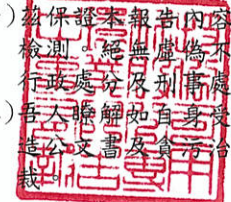 )茲保證本報告內容
檢測。絕無虛偽不
行政處分及刑事處
)吾人瞭解如自身受
造公文書及貪污治
裁。